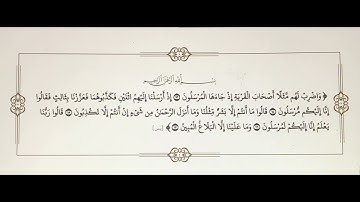 بسم الله الرحمن الرحيم
﴿ وَاضْرِبْ لَهُم مَّثَلًا أَصْحَابَ الْقَرْيَةِ إِذْ جَاءَهَا الْمُرْسَلُونَ ۝ إِذْ أَرْسَلْنَا إِلَيْهِمُ اثْنَيْنِ فَكَذَّبُوهُمَا فَعَزَّزْنَا بِثَالِثٍ فَقَالُوا
إِنَّا إِلَيْكُم مُّرْسَلُونَ ۝ قَالُوا مَا أَنتُمْ إِلَّا بَشَرٌ مِّثْلُنَا وَمَا أَنزَلَ الرَّحْمَٰنُ مِن شَيْءٍ إِنْ أَنتُمْ إِلَّا تَكْذِبُونَ ۝ قَالُوا رَبُّنَا
يَعْلَمُ إِنَّا إِلَيْكُمْ لَمُرْسَلُونَ ۝ وَمَا عَلَيْنَا إِلَّا الْبَلَاغُ الْمُبِينُ ۝ ﴾